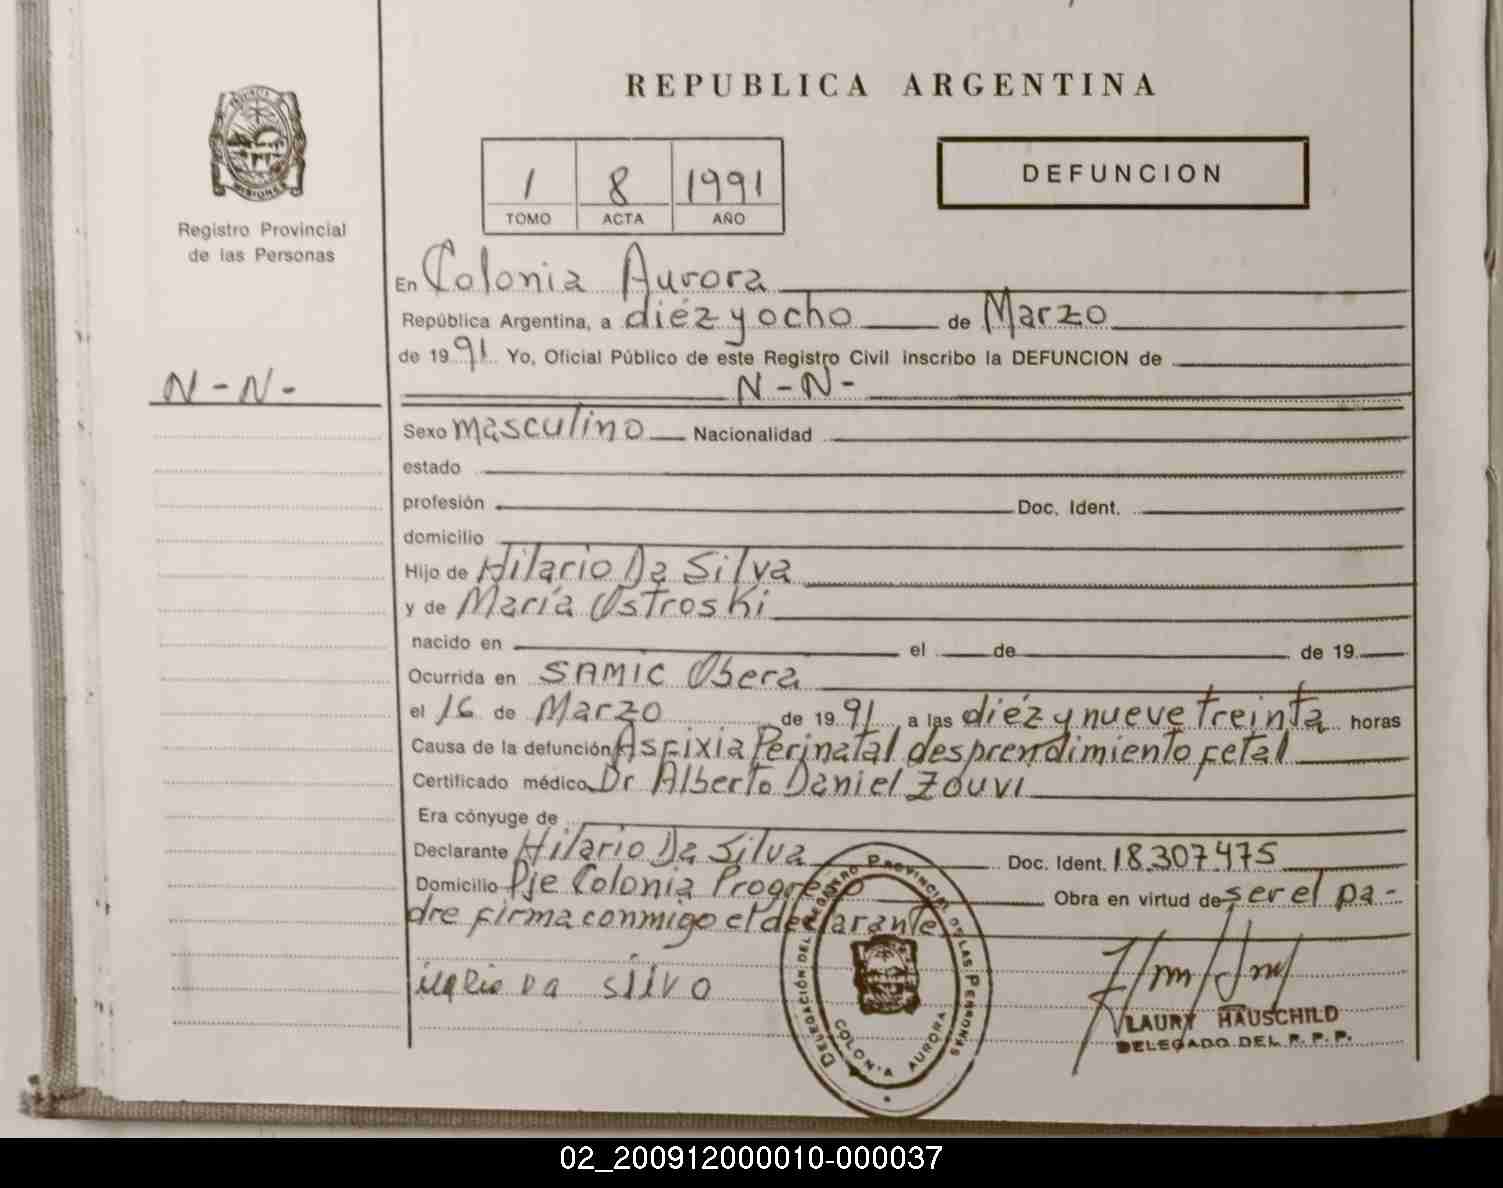 REPUBLICA ARGENTINA
MISIONES
Registro Provincial
de las Personas
1 8 1991
TOMO ACTA AÑO
DEFUNCION
En Colonia Aurora
República Argentina, a diéz y ocho de Marzo
de 1991 Yo, Oficial Público de este Registro Civil inscribo la DEFUNCION de
N-N-
N-N-
Sexo masculino Nacionalidad
estado
profesión Doc. Ident.
domicilio
Hijo de Hilario Da Silva
y de María Ostroski
nacido en el de de 19
Ocurrida en SAMIC Obera
el 16 de Marzo de 1991 a las diéz y nueve treinta horas
Causa de la defunción Asfixia Perinatal desprendimiento fetal
Certificado médico Dr Alberto Daniel Zouvi
Era cónyuge de
Declarante Hilario Da Silva Doc. Ident. 18.307.475
Domicilio Pje Colonia Progreso Obra en virtud de ser el pa-
dre firma conmigo el declarante
DA SilVO
DELEGACIÓN DEL REGISTRO PROVINCIAL DE LAS PERSONAS
COLONIA AURORA
LAURY HAUSCHILD
DELEGADO DEL R. P. P.
02_200912000010-000037